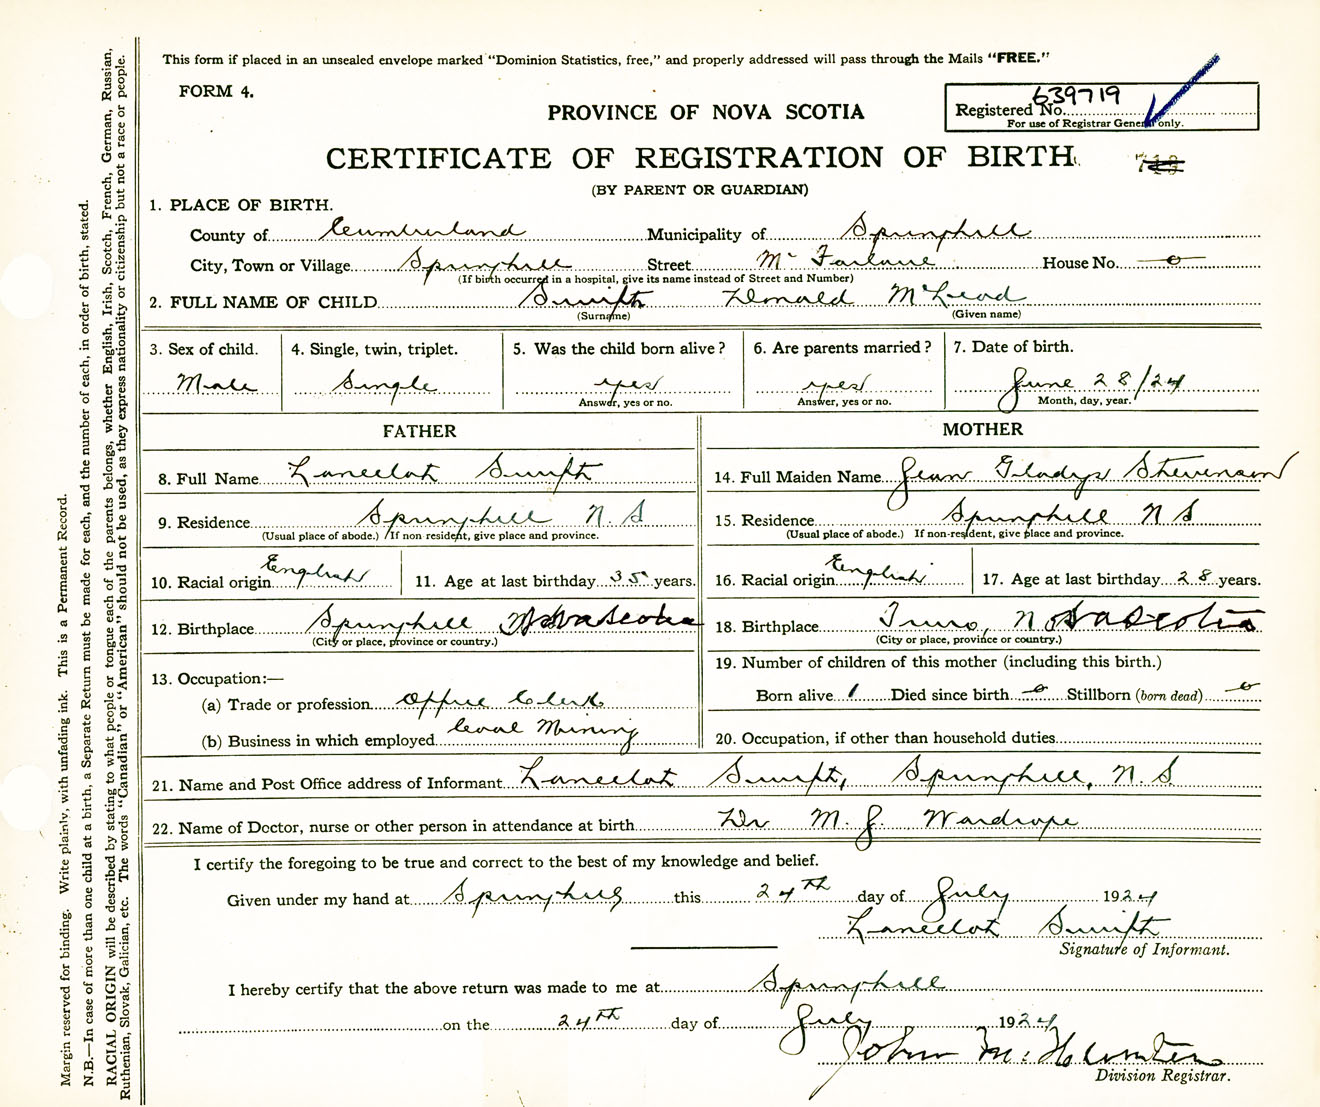 This form if placed in an unsealed envelope marked "Dominion Statistics, free," and properly addressed will pass through the Mails "FREE."
FORM 4.
PROVINCE OF NOVA SCOTIA
Registered No. 639719
For use of Registrar General only.
CERTIFICATE OF REGISTRATION OF BIRTH
(BY PARENT OR GUARDIAN)
1. PLACE OF BIRTH.
County of Cumberland Municipality of Springhill
City, Town or Village Springhill Street McFarlane House No. 0
(If birth occurred in a hospital, give its name instead of Street and Number)
2. FULL NAME OF CHILD Swift Donald McLeod
(Surname) (Given name)
3. Sex of child. 4. Single, twin, triplet. 5. Was the child born alive? 6. Are parents married? 7. Date of birth.
Male Single yes yes June 28/24
Answer, yes or no. Answer, yes or no. Month, day, year.
FATHER MOTHER
8. Full Name Lancelot Swift 14. Full Maiden Name Jean Gladys Stevenson
9. Residence Springhill N.S 15. Residence Springhill N S
(Usual place of abode.) If non resident, give place and province. (Usual place of abode.) If non-resident, give place and province.
10. Racial origin English 11. Age at last birthday 35 years. 16. Racial origin English 17. Age at last birthday 28 years.
12. Birthplace Springhill Nova Scotia 18. Birthplace Truro, Nova Scotia
(City or place, province or country.) (City or place, province or country.)
13. Occupation:— 19. Number of children of this mother (including this birth.)
(a) Trade or profession Office Clerk Born alive 1 Died since birth 0 Stillborn (born dead) 0
(b) Business in which employed Coal Mining 20. Occupation, if other than household duties
21. Name and Post Office address of Informant Lancelot Swift, Springhill, N.S.
22. Name of Doctor, nurse or other person in attendance at birth Dr M. J. Wardrope
I certify the foregoing to be true and correct to the best of my knowledge and belief.
Given under my hand at Springhill this 24th day of July 1924
Lancelot Swift
Signature of Informant.
I hereby certify that the above return was made to me at Springhill
on the 24th day of July 1924
John M. Hunter
Division Registrar.
Margin reserved for binding. Write plainly, with unfading ink. This is a Permanent Record.
N.B.—In case of more than one child at a birth, a Separate Return must be made for each, and the number of each, in order of birth, stated.
RACIAL ORIGIN will be described by stating to what people or tongue each of the parents belongs, whether English, Irish, Scotch, French, German, Russian,
Ruthenian, Slovak, Galician, etc. The words "Canadian" or "American" should not be used, as they express nationality or citizenship but not a race or people.